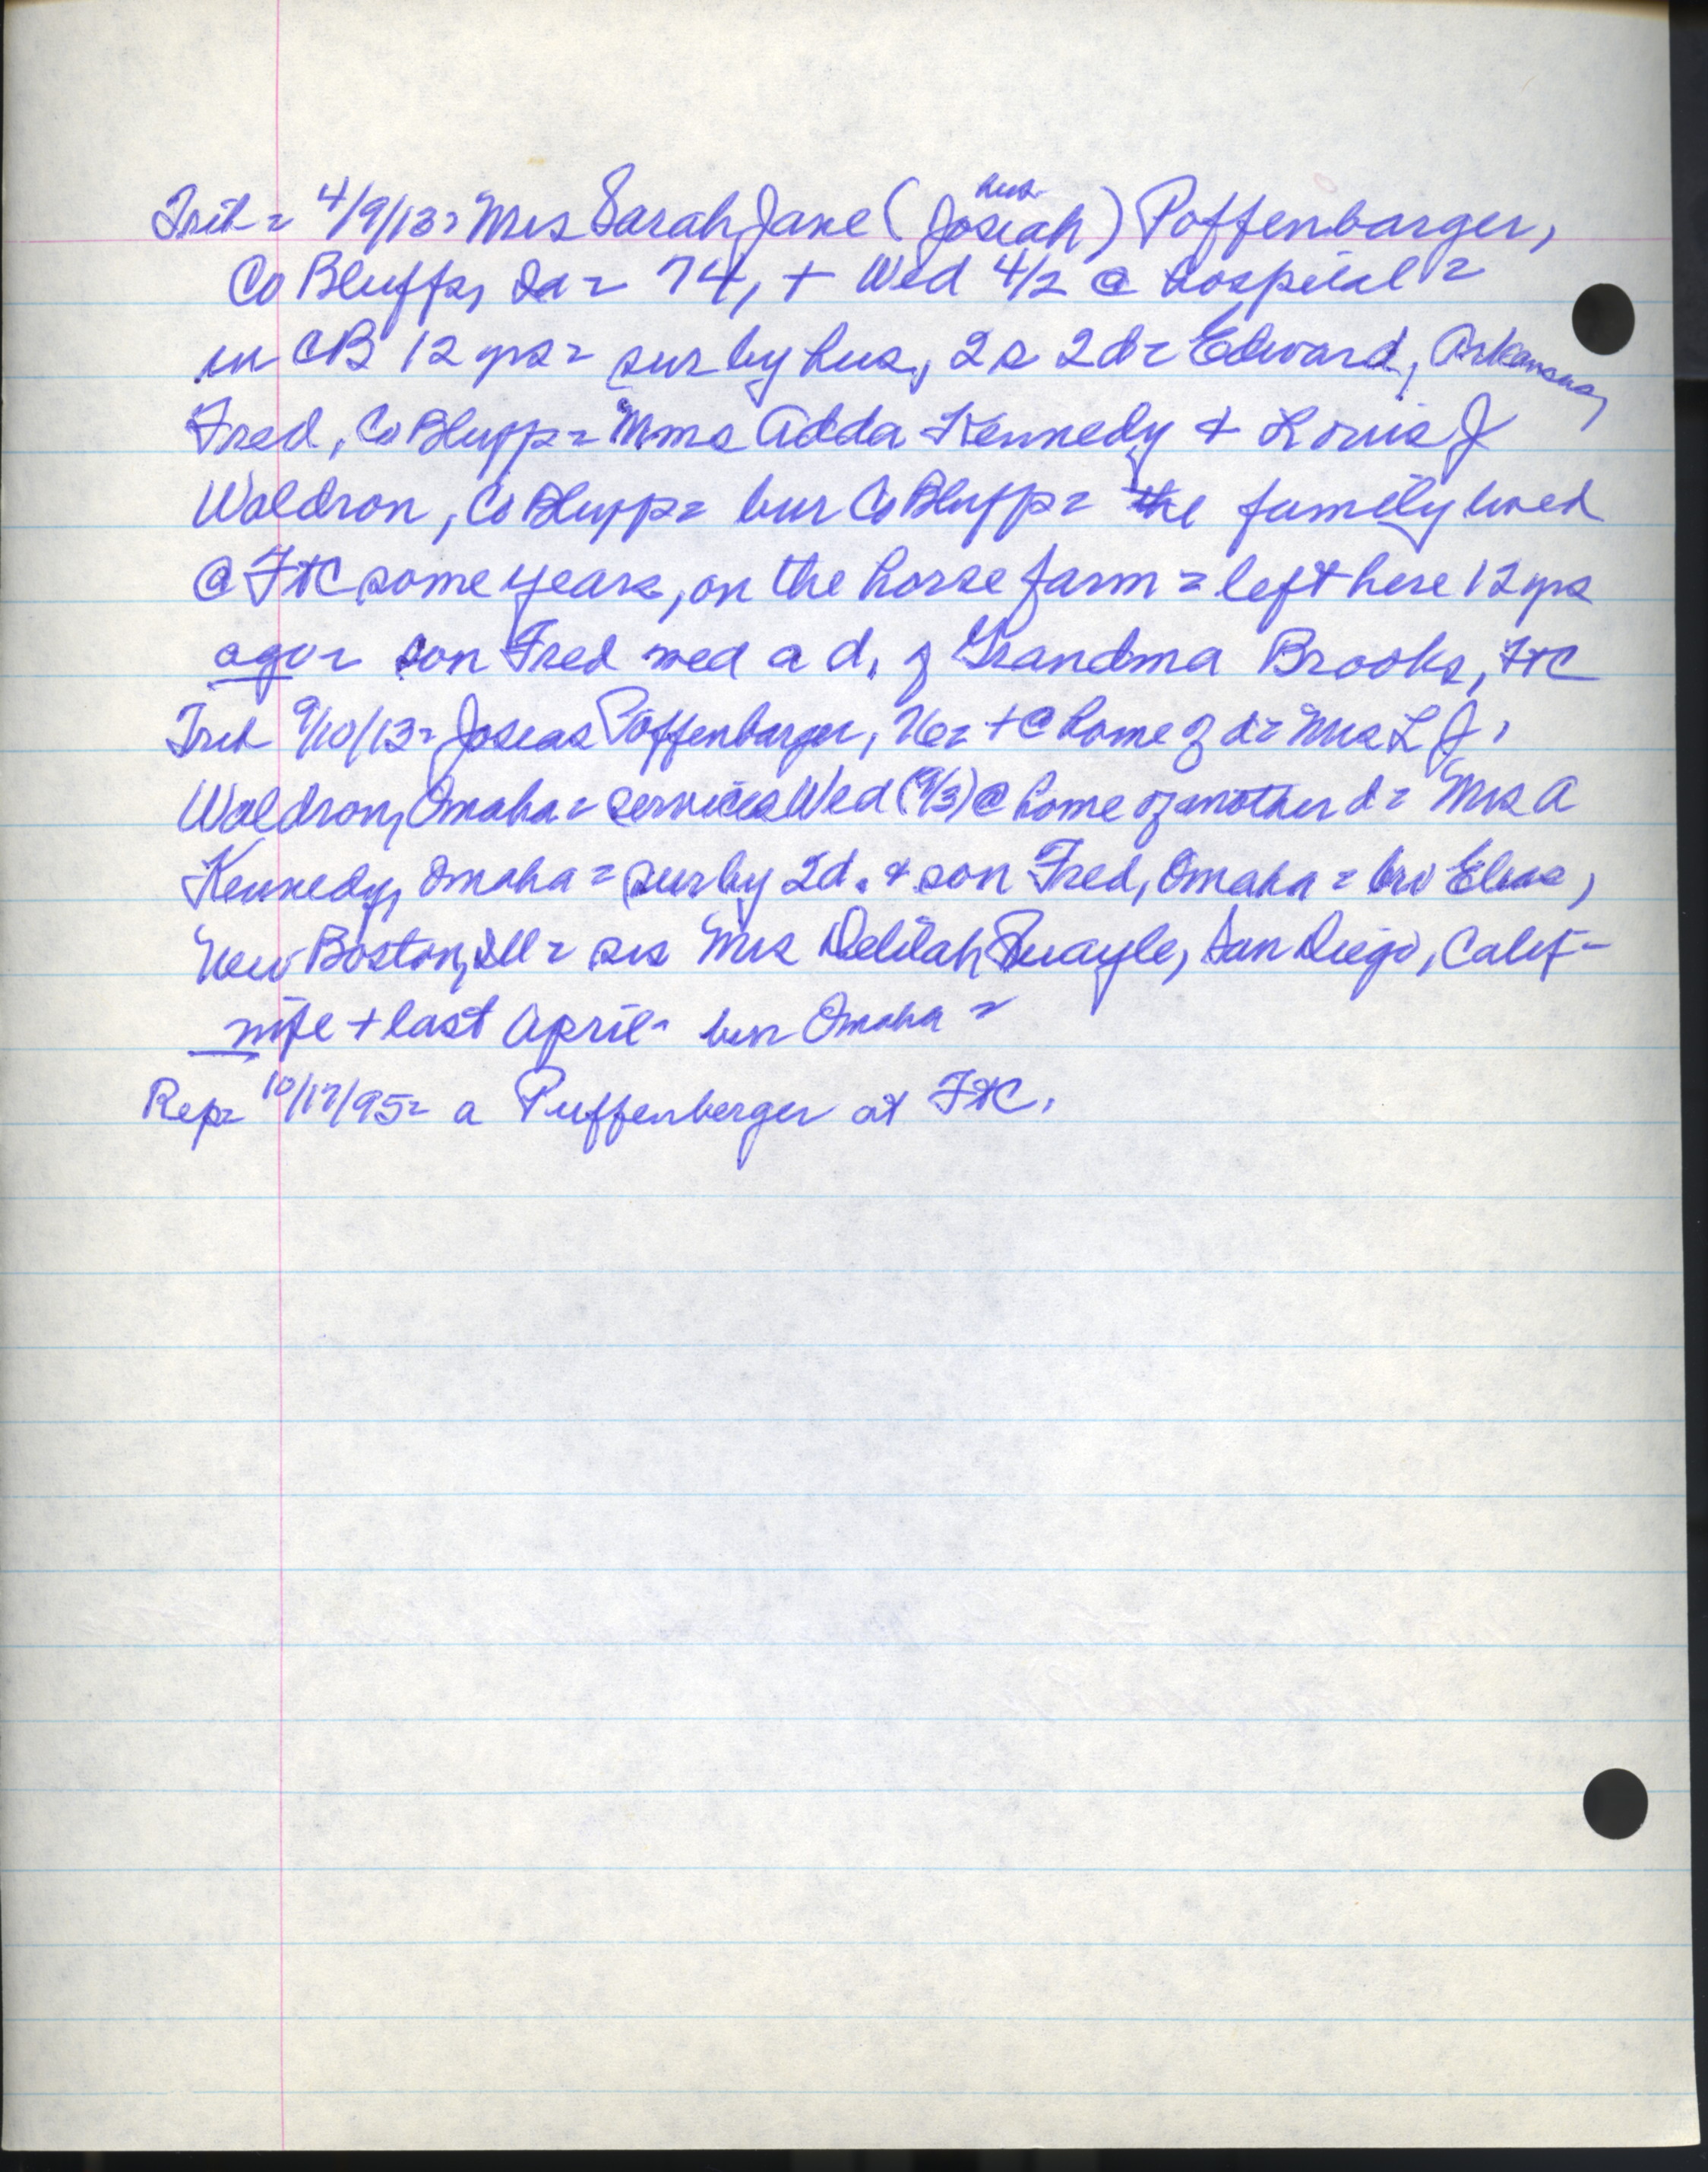 Trib = 4/9/13 = Mrs Sarah Jane (Josiah) Poffenbarger,
hus
Co Bluffs, Ia = 74, + Wed 4/2 @ hospital =
in CB 12 yrs = sur by hus, 2 s 2 d = Edward, Arkansas,
Fred, Co Bluffs = Mmes Adda Kennedy + Louis J
Waldron, Co Bluffs = bur Co Bluffs = the family lived
@ FtC some years, on the horse farm = left here 12 yrs
ago = son Fred med a d. of Grandma Brooks, FtC
Trib 9/10/13 = Joseas Poffenbarger, 76 = + @ home of d = Mrs L J.
Waldron, Omaha = services Wed (9/3) @ home of another d = Mrs A
Kennedy, Omaha = sur by 2 d. + son Fred, Omaha = bro Elias,
New Boston, Ill = sis Mrs Delilah Quayle, San Diego, Calif -
wife + last April - bur Omaha =
Rep = 10/17/95 = a Puffenberger at FtC.